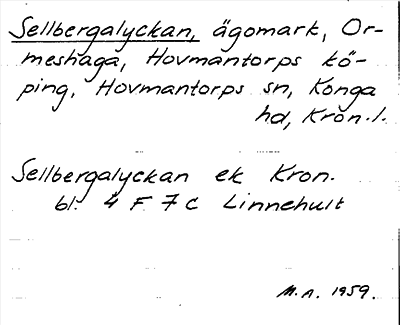 Sellbergalyckan, ägomark, Or-
meshaga, Hovmantorps kö-
ping, Hovmantorps sn, Konga
hd, Kron. l.
Sellbergalyckan ek Kron.
bl. 4 F 7 c Linnehult
M.A. 1959.